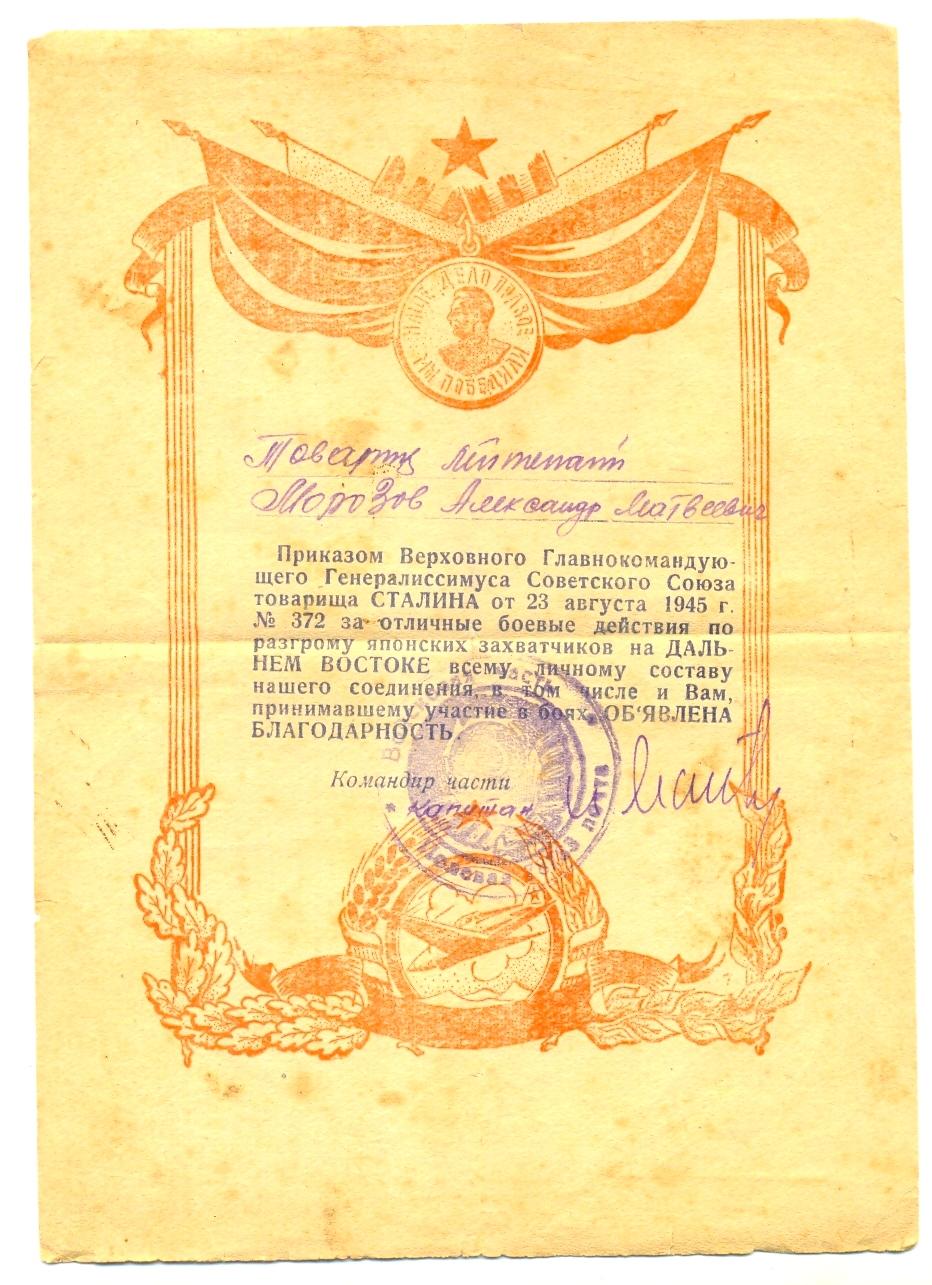 НАШЕ ДЕЛО ПРАВОЕ
МЫ ПОБЕДИЛИ
Товарищ лейтенант
Морозов Александр Матвеевич
Приказом Верховного Главнокомандую-
щего Генералиссимуса Советского Союза
товарища СТАЛИНА от 23 августа 1945 г.
№ 372 за отличные боевые действия по
разгрому японских захватчиков на ДАЛЬ-
НЕМ ВОСТОКЕ всему личному составу
нашего соединения, в том числе и Вам,
принимавшему участие в боях, ОБ'ЯВЛЕНА
БЛАГОДАРНОСТЬ.
Командир части
капитан
часть
полевая почта